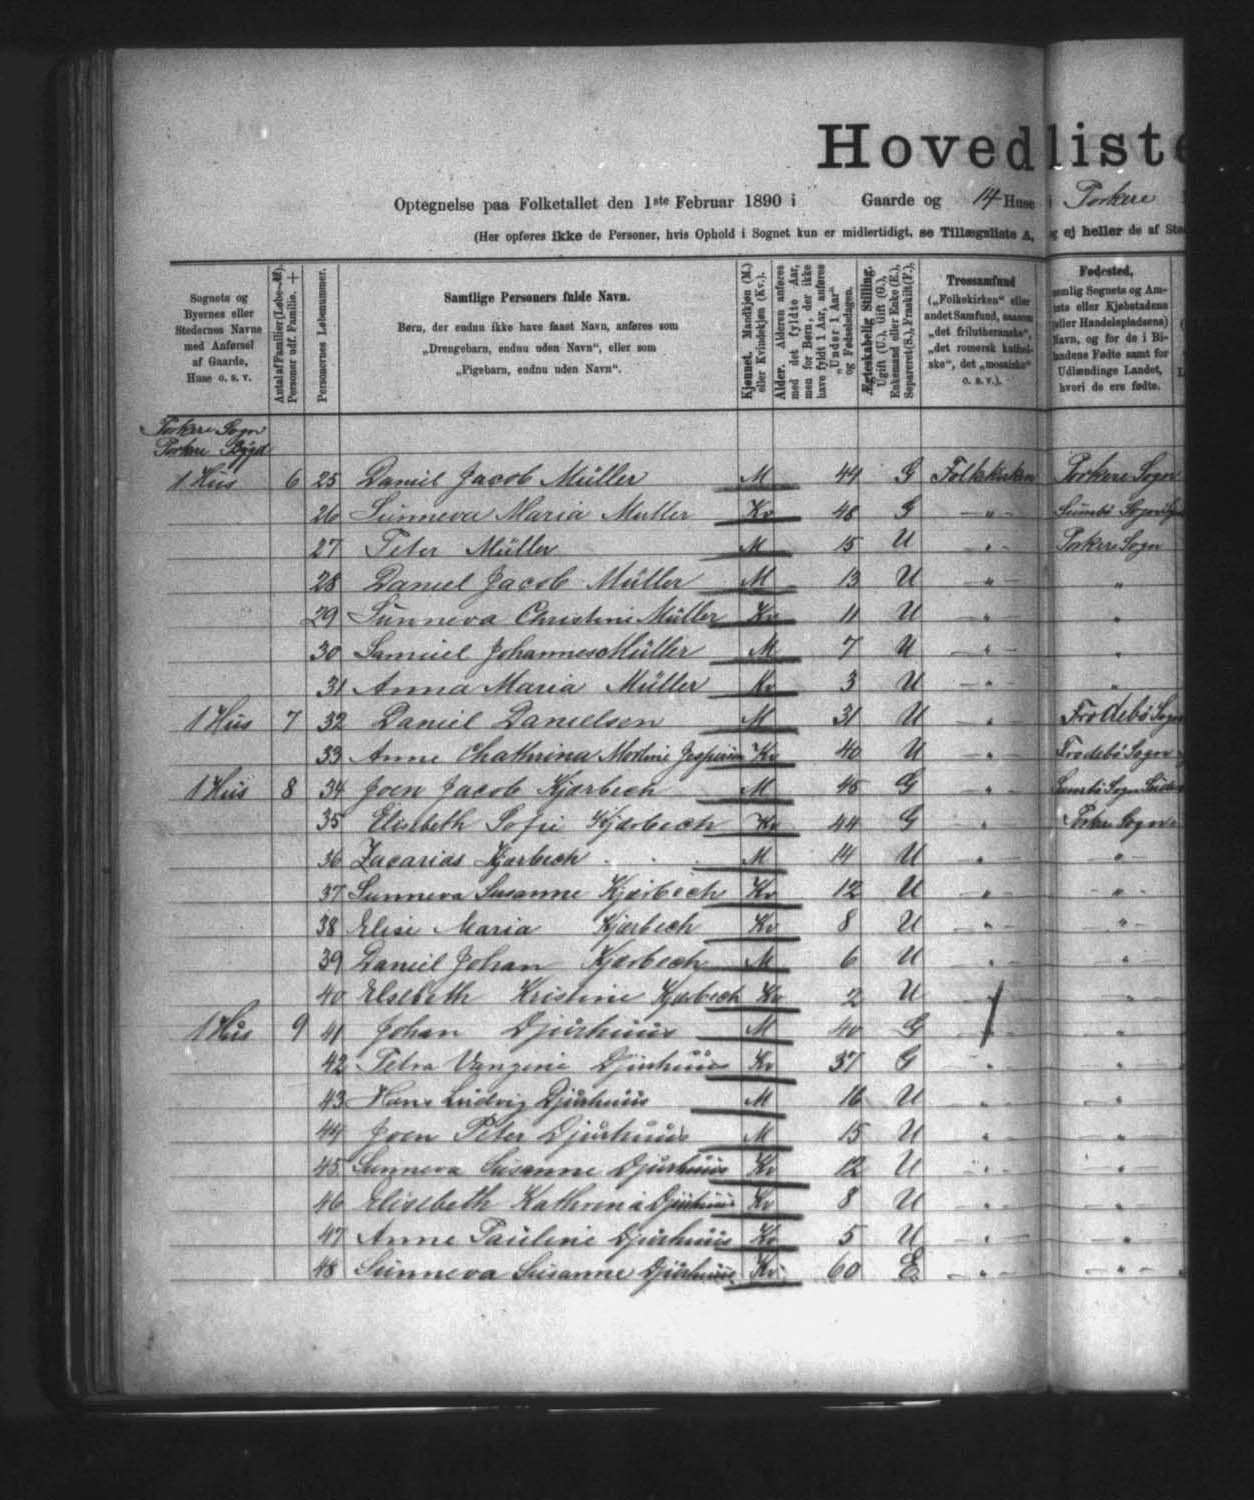 Hovedliste
Optegnelse paa Folketallet den 1ste Februar 1890 i Gaarde og 14 Huse i Porkere
(Her opføres ikke de Personer, hvis Ophold i Sognet kun er midlertidigt, se Tillægsliste A, og ej heller de af
Sognets og Byernes eller Stedernes Navne med Anførsel af Gaarde, Huse o. s. v.
Antal af Familier (Løbe-№). Personer udf. Familie. +
Personernes Løbenummer.
Samtlige Personers fulde Navn.
Børn, der endnu ikke have faaet Navn, anføres som
„Drengebarn, endnu uden Navn“, eller som
„Pigebarn, endnu uden Navn“.
Kjønnet. Mandkjøn (M.) eller Kvindekjøn (Kv.).
Alder. Alderen anføres med det fyldte Aar, men for Børn, der ikke have fyldt 1 Aar, anføres „Under 1 Aar“ og Fødselsdagen.
Ægteskabelig Stilling. Ugift (U.), Gift (G.), Enkemand eller Enke (E.), Separeret (S.), Fraskilt (F.).
Trossamfund („Folkekirken“ eller andet Samfund, saasom „det frilutheranske“, „det romersk katholske“, det „mosaiske“ o. s. v.).
Fødested, nemlig Sognets og Amtets eller Kjøbstadens (eller Handelspladsens) Navn, og for de i Bilandene Fødte samt for Udlændinge Landet, hvori de ere fødte.
Porkere Sogn
Porkere Bygd
1 Hus 6 25 Daniel Jacob Müller M 44 G Folkekirken Porkere Sogn
26 Sunneva Maria Muller Kv 48 G — " — Sumbø Sogn
27 Peter Müller M 15 U — " — Porkere Sogn
28 Daniel Jacob Müller M 13 U — " — "
29 Sunneva Christine Müller Kv 11 U — " — "
30 Samuel Johannes Müller M 7 U — " — "
31 Anna Maria Müller Kv 3 U — " — "
1 Hus 7 32 Daniel Danielsen M 31 U — " — Frodebø Sogn
33 Anne Chathrina Mortine Kv 40 U — " — Frodebø Sogn
1 Hus 8 34 Joen Jacob Kjærbech M 45 G — " — Sumbø Sogn
35 Elisebeth Sofie Kjærbech Kv 44 G " Porkere Sogn
36 Zacarias Kjærbech M 14 U — " — — " —
37 Sunneva Susanne Kjærbech Kv 12 U — " — — " —
38 Elise Maria Kjærbech Kv 8 U — " — — " —
39 Daniel Johan Kjærbech M 6 U — " — "
40 Elsebeth Kristine Kjærbech Kv 2 U — " — "
1 Hus 9 41 Johan Djurhuus M 40 G — " — "
42 Petra Vangine Djurhuus Kv 37 G — " — "
43 Hans Ludvig Djurhuus M 16 U — " — "
44 Joen Peter Djurhuus M 15 U — " — "
45 Sunneva Susanne Djurhuus Kv 12 U — " — "
46 Elisebeth Kathrina Djurhuus Kv 8 U — " — "
47 Anne Pauline Djurhuus Kv 5 U — " — "
48 Sunneva Susanne Djurhuus Kv 60 E — " — — " —